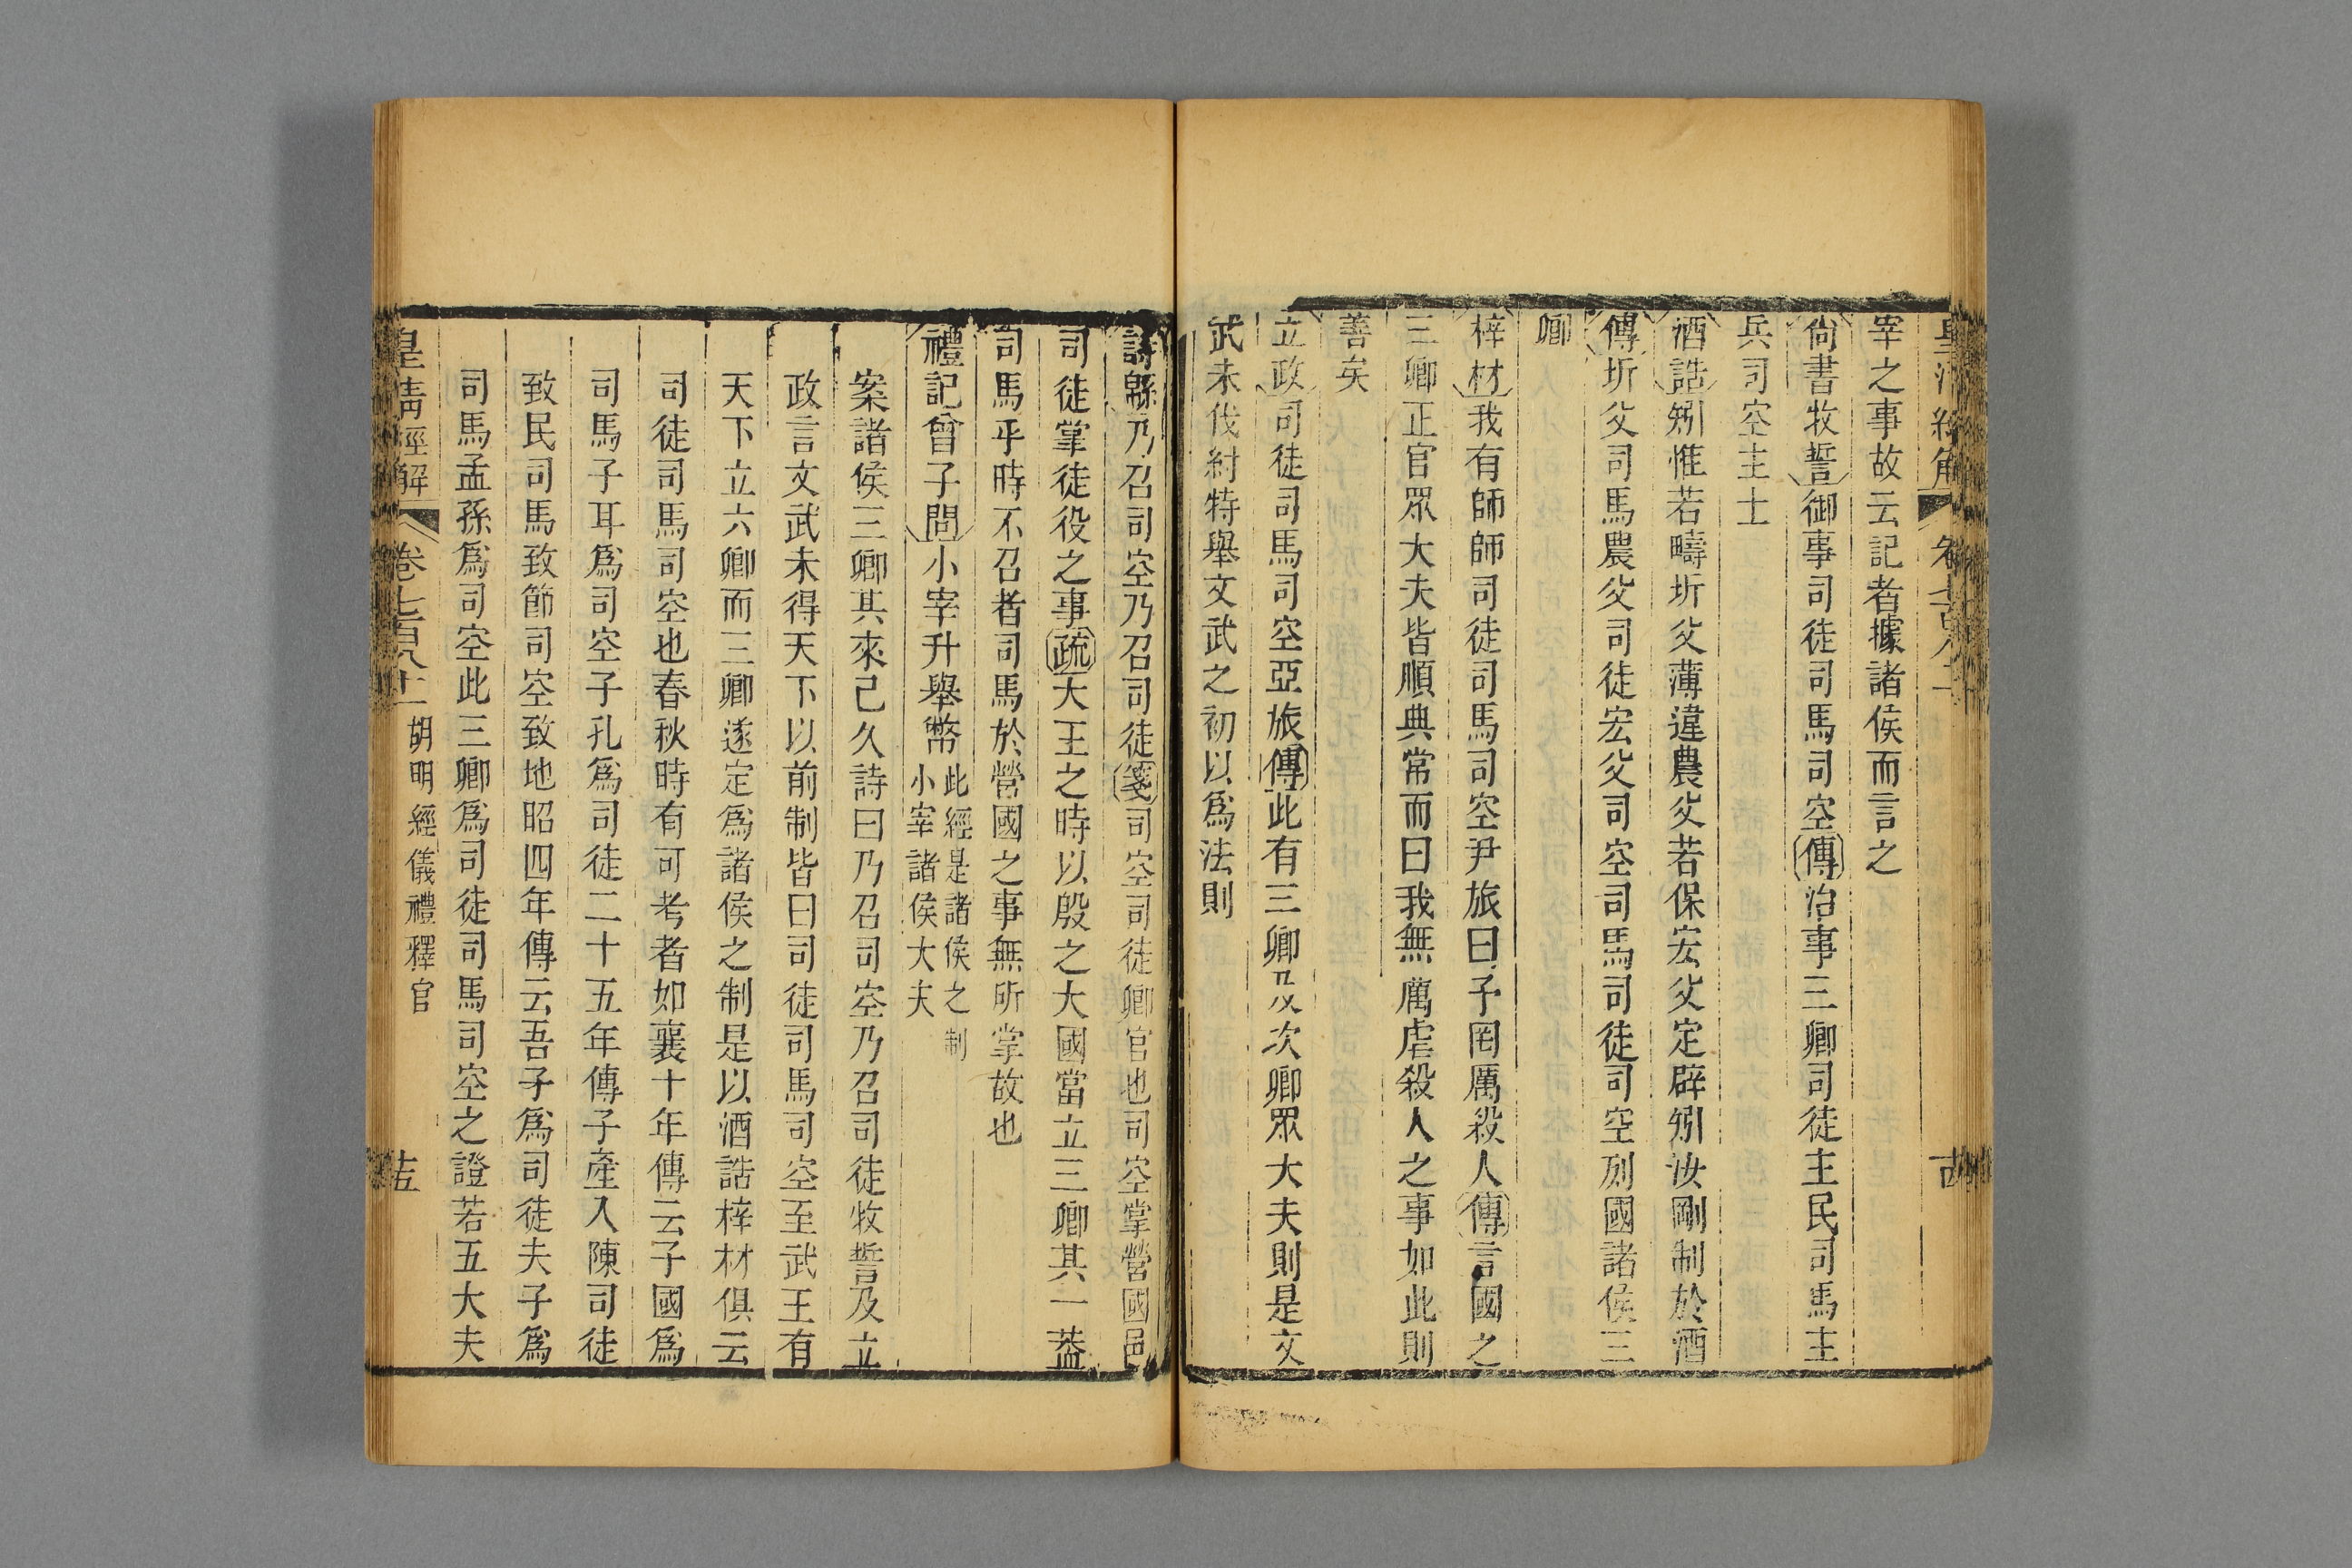 宰之事故云記者據諸侯而言之
尙書牧誓御事司徒司馬司空傳治事三卿司徒主民司馬主
兵司空主土
酒誥矧惟若疇圻父薄違農父若保宏父定辟矧汝剛制於酒
傳圻父司馬農父司徒宏父司空司馬司徒司空列國諸侯三
卿
梓材我有師師司徒司馬司空尹旅曰予罔厲殺人傳言國之
三卿正官眾大夫皆順典常而曰我無厲虐殺人之事如此則
善矣
立政司徒司馬司空亞旅傳此有三卿及次卿眾大夫則是文
武未伐紂特舉文武之初以爲法則
詩緜乃召司空乃召司徒箋司空司徒卿官也司空掌營國邑
司徒掌徒役之事疏大王之時以殷之大國當立三卿其一葢
司馬乎時不召者司馬於營國之事無所掌故也
禮記曾子問小宰升舉幣此經是諸侯之制
小宰諸侯大夫
案諸侯三卿其來己久詩曰乃召司空乃召司徒牧誓及立
政言文武未得天下以前制皆曰司徒司馬司空至武王有
天下立六卿而三卿遂定爲諸侯之制是以酒誥梓材俱云
司徒司馬司空也春秋時有可考者如襄十年傳云子國爲
司馬子耳爲司空子孔爲司徒二十五年傳子產入陳司徒
致民司馬致節司空致地昭四年傳云吾子爲司徒夫子爲
司馬孟孫爲司空此三卿爲司徒司馬司空之證若五大夫
皇淸經解 卷七百八十一 胡明經儀禮釋官